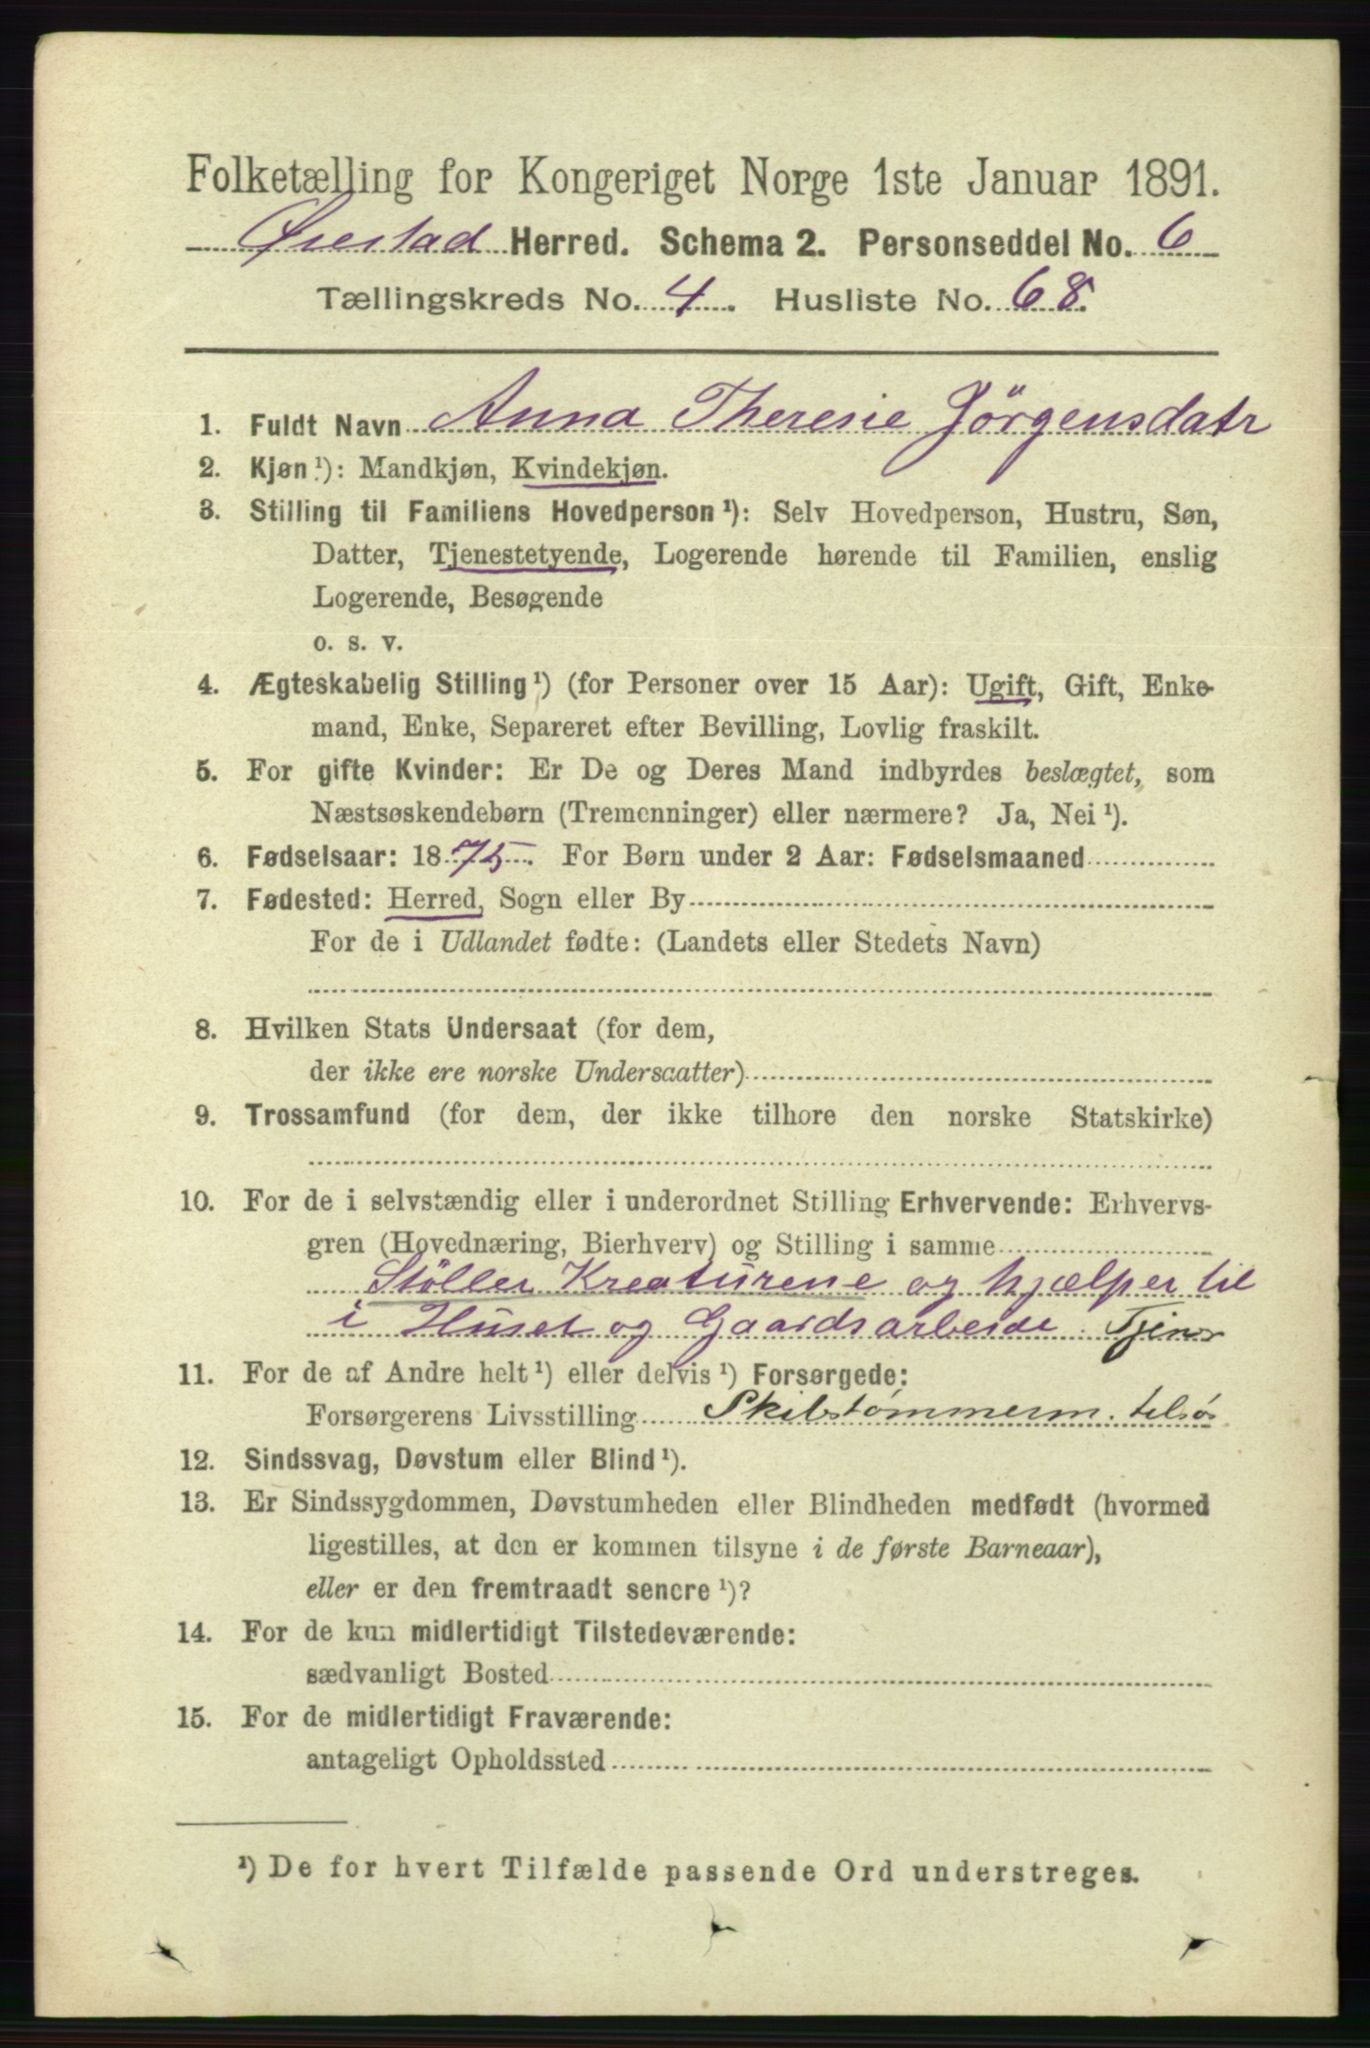 Folketælling for Kongeriget Norge 1ste Januar 1891.
Øiestad Herred. Schema 2. Personseddel No. 6
Tællingskreds No. 4. Husliste No. 68.
1. Fuldt Navn Anna Theresie Jörgensdatr
2. Kjøn ¹): Mandkjøn, Kvindekjøn.
3. Stilling til Familiens Hovedperson ¹): Selv Hovedperson, Hustru, Søn,
Datter, Tjenestetyende, Logerende hørende til Familien, enslig
Logerende, Besøgende
o. s. v.
4. Ægteskabelig Stilling ¹) (for Personer over 15 Aar): Ugift, Gift, Enke-
mand, Enke, Separeret efter Bevilling, Lovlig fraskilt.
5. For gifte Kvinder: Er De og Deres Mand indbyrdes beslægtet, som
Næstsøskendebørn (Tremenninger) eller nærmere? Ja, Nei ¹).
6. Fødselsaar: 1875. For Børn under 2 Aar: Fødselsmaaned
7. Fødested: Herred, Sogn eller By
For de i Udlandet fødte: (Landets eller Stedets Navn)
8. Hvilken Stats Undersaat (for dem,
der ikke ere norske Undersaatter)
9. Trossamfund (for dem, der ikke tilhøre den norske Statskirke)
10. For de i selvstændig eller i underordnet Stilling Erhvervende: Erhvervs-
gren (Hovednæring, Bierhverv) og Stilling i samme
Stöller Kreaturene og hjælper til
i Huset og Gaardsarbeide. Tjener
11. For de af Andre helt ¹) eller delvis ¹) Forsørgede:
Forsørgerens Livsstilling Skibstømmerm. tilsøs
12. Sindssvag, Døvstum eller Blind ¹).
13. Er Sindssygdommen, Døvstumheden eller Blindheden medfødt (hvormed
ligestilles, at den er kommen tilsyne i de første Barneaar),
eller er den fremtraadt senere ¹)?
14. For de kun midlertidigt Tilstedeværende:
sædvanligt Bosted
15. For de midlertidigt Fraværende:
antageligt Opholdssted
¹) De for hvert Tilfælde passende Ord understreges.